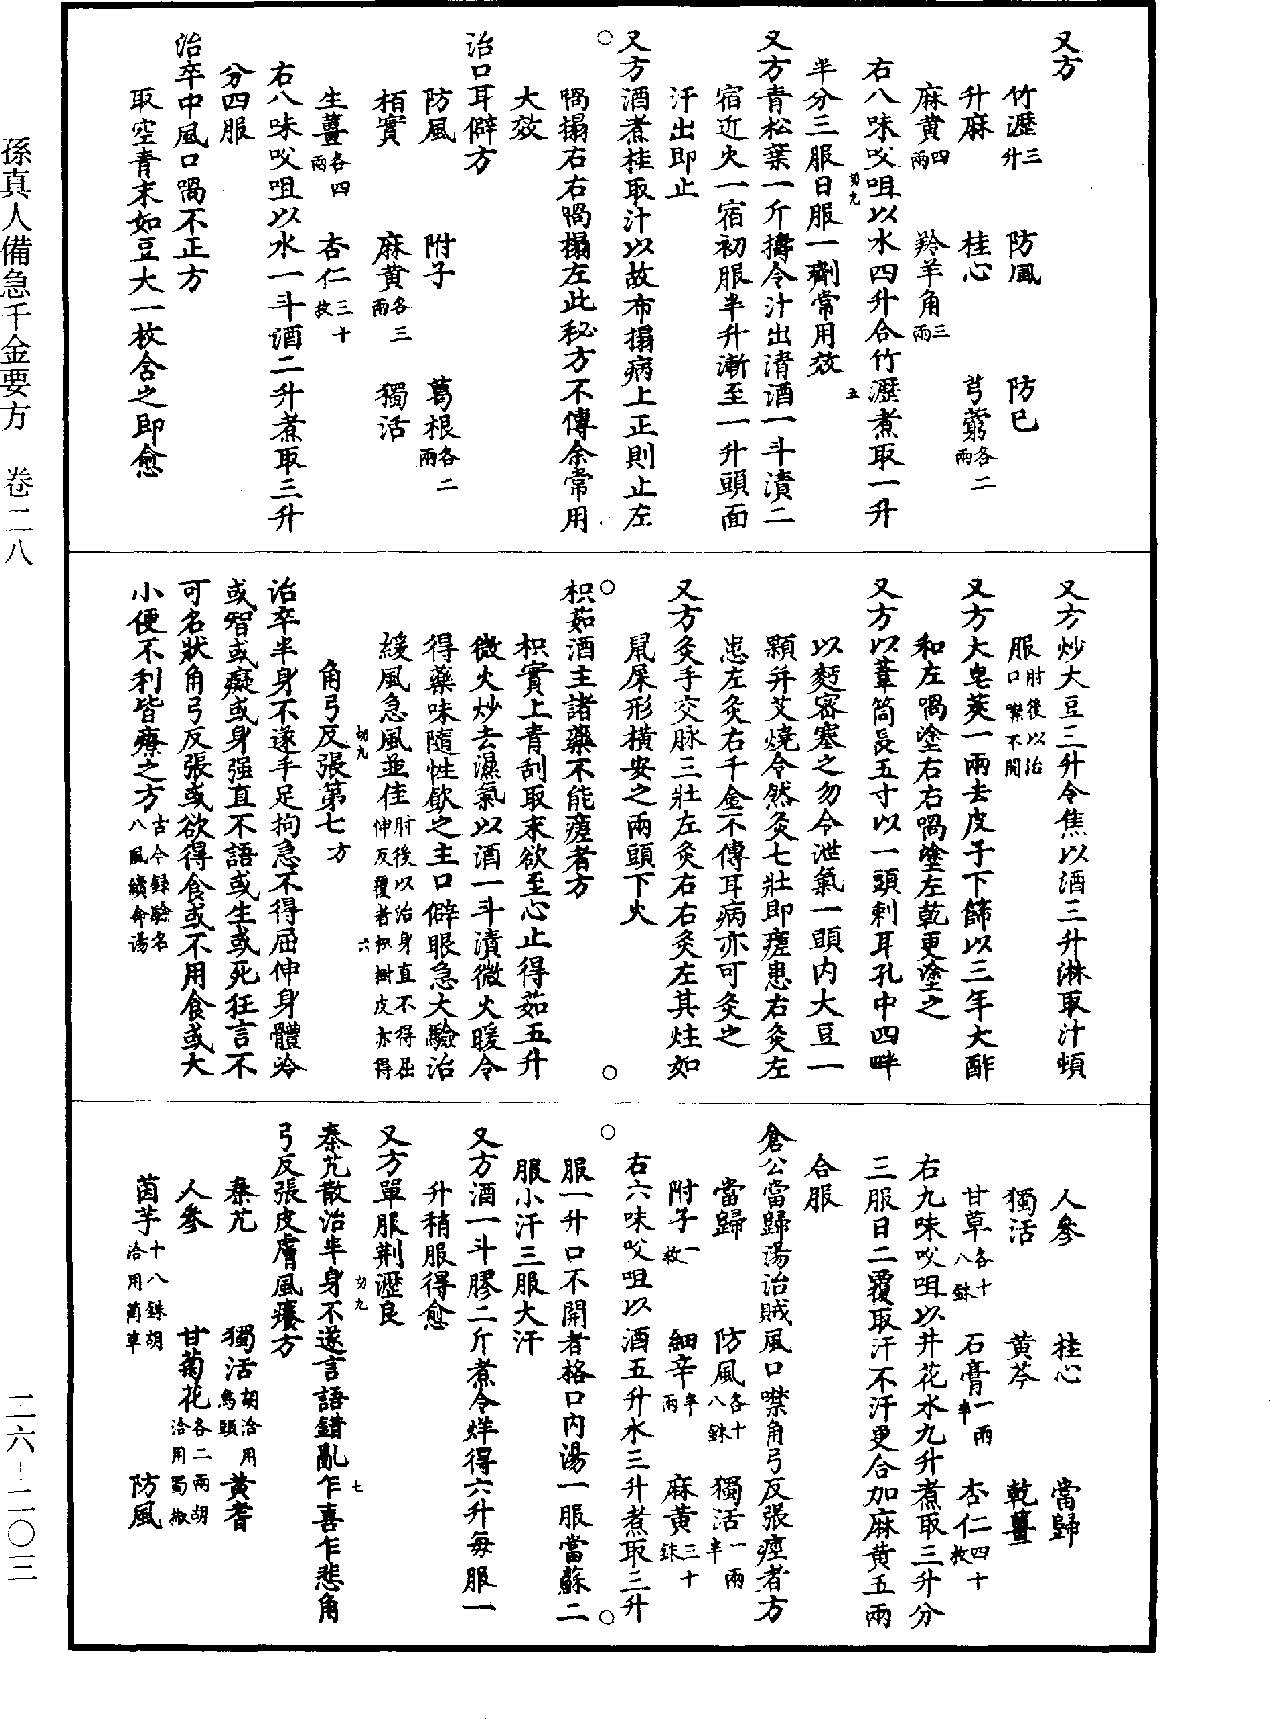 又方
竹瀝三升　防風　防己
升麻　桂心　芎藭各二兩
麻黃四兩　羚羊角三兩
右八味㕮咀以水四升合竹瀝煮取一升
半分三服日服一劑常用效
切九
五
又方青松葉一斤擣令汁出清酒一斗漬二
宿近火一宿初服半升漸至一升頭面
汗出即止
又方酒煮桂取汁以故布搨病上正則止左
喎搨右右喎搨左此秘方不傳余常用
大效
治口耳僻方
防風　附子　葛根各二兩
栢實　麻黃各三兩　獨活
生薑各四兩　杏仁三十枚
右八味㕮咀以水一斗酒二升煮取三升
分四服
治卒中風口喎不正方
取空青末如豆大一枚含之即愈
又方炒大豆三升令焦以酒三升淋取汁頓
服肘後以治口噤不開
又方大皂莢一兩去皮子下篩以三年大酢
和左喎塗右右喎塗左乾更塗之
又方以葦筒長五寸以一頭剌耳孔中四畔
以麪密塞之勿令泄氣一頭內大豆一
顆并艾燒令然灸七壯即瘥患右灸左
患左灸右千金不傳耳病亦可灸之
又方灸手交脉三壯左灸右右灸左其炷如
鼠屎形橫安之兩頭下火
枳茹酒主諸藥不能瘥者方
枳實上青刮取末欲至心止得茹五升
微火炒去濕氣以酒一斗漬微火暖令
得藥味隨性飲之主口僻眼急大驗治
緩風急風並佳肘後以治身直不得屈伸反覆者枳樹皮亦得
切九
六
角弓反張第七方
治卒半身不遂手足拘急不得屈伸身體冷
或智或癡或身强直不語或生或死狂言不
可名狀角弓反張或欲得食或不用食或大
小便不利皆療之方古今録驗名八風續命湯
人參　桂心　當歸
獨活　黃芩　乾薑
甘草各十八銖　石膏一兩半　杏仁四十枚
右九味㕮咀以井花水九升煮取三升分
三服日二覆取汗不汗更合加麻黃五兩
合服
倉公當歸湯治賊風口噤角弓反張痙者方
當歸　防風各十八銖　獨活一兩半
附子一枚　細辛半兩　麻黃三十銖
右六味㕮咀以酒五升水三升煮取三升
服一升口不開者格口內湯一服當蘇二
服小汗三服大汗
又方酒一斗膠二斤煮令烊得六升每服一
升稍服得愈
又方單服荆瀝良
切九
七
秦艽散治半身不遂言語錯亂乍喜乍悲角
弓反張皮膚風癢方
秦艽　獨活胡洽用烏頭　黃耆
人參　甘菊花各二兩胡洽用蜀椒　防風
茵芋十八銖胡洽用䕡草
孫真人備急千金要方　卷二八
二六-二〇三